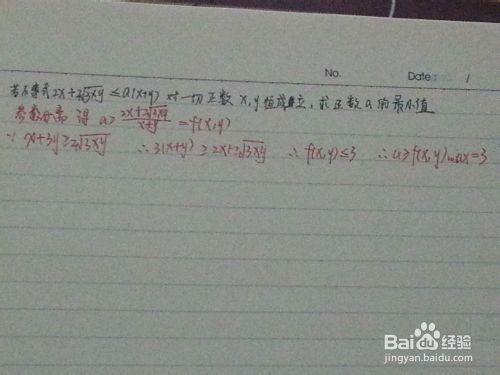 No. Date: /
若不等式2x+2√3xy ≤ a(x+y) 对一切正数 x,y 恒成立, 求正数 a 的最小值
参数分离 得 a≥ (2x+2√3xy)/(x+y) = f(x,y)
∵ x+3y≥2√3xy ∴ 3(x+y) ≥ 2x+2√3xy ∴ f(x,y)≤3 ∴ a≥f(x,y)max=3
Baidu经验
jingyan.baidu.com